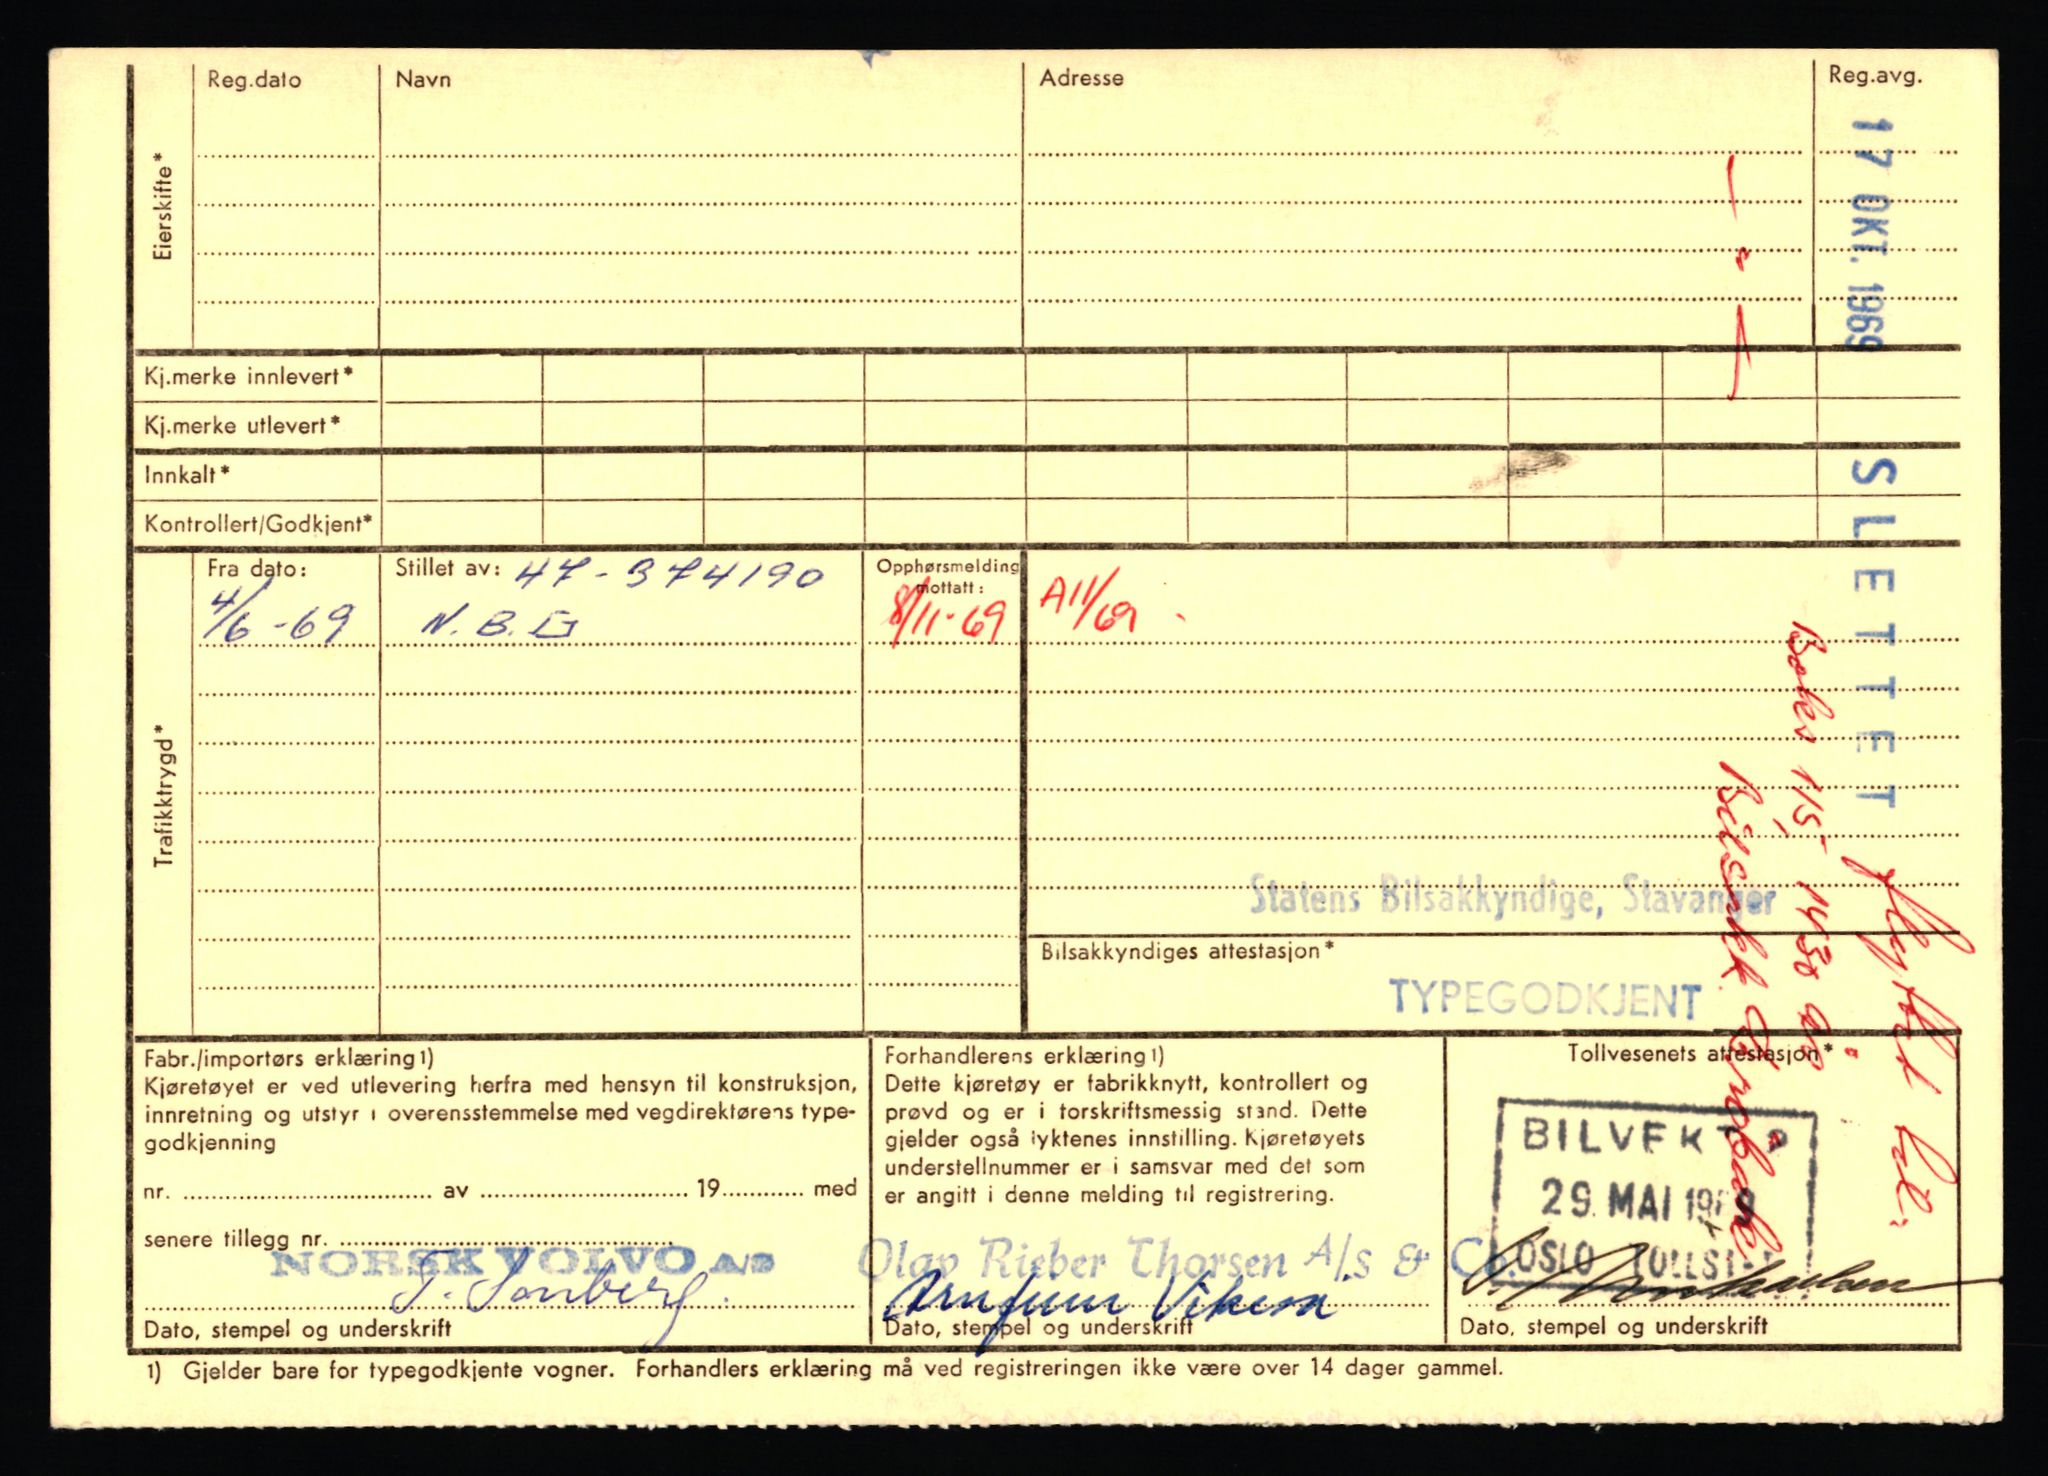 Reg.dato Navn Adresse Reg.avg.
Eierskifte*
17 OKT. 1969
SLETTET
Kj.merke innlevert*
Kj.merke utlevert*
Innkalt*
Kontrollert/Godkjent*
Trafikktrygd*
Fra dato: Stillet av: 47-374190 Opphørsmelding mottatt:
4/6-69 N.B. 8/11-69 A11/69
flyttet til:
Boks 115 1430 Ås
Statens Bilsakkyndige, Stavanger
Bilsakkyndiges attestasjon*
TYPEGODKJENT
Fabr./importørs erklæring 1)
Kjøretøyet er ved utlevering herfra med hensyn til konstruksjon,
innretning og utstyr i overensstemmelse med vegdirektørens type-
godkjenning
nr. av 19 med
senere tillegg nr.
NORSK VOLVO A/S
Dato, stempel og underskrift
Forhandlerens erklæring 1)
Dette kjøretøy er fabrikknytt, kontrollert og
prøvd og er i forskriftsmessig stand. Dette
gjelder også lyktenes innstilling. Kjøretøyets
understellnummer er i samsvar med det som
er angitt i denne melding til registrering.
Olav Rieber Thorsen A/S & Co.
Dato, stempel og underskrift
Tollvesenets attestasjon*
29. MAI 1969
OSLO TOLLST
Dato, stempel og underskrift
1) Gjelder bare for typegodkjente vogner. Forhandlers erklæring må ved registreringen ikke være over 14 dager gammel.